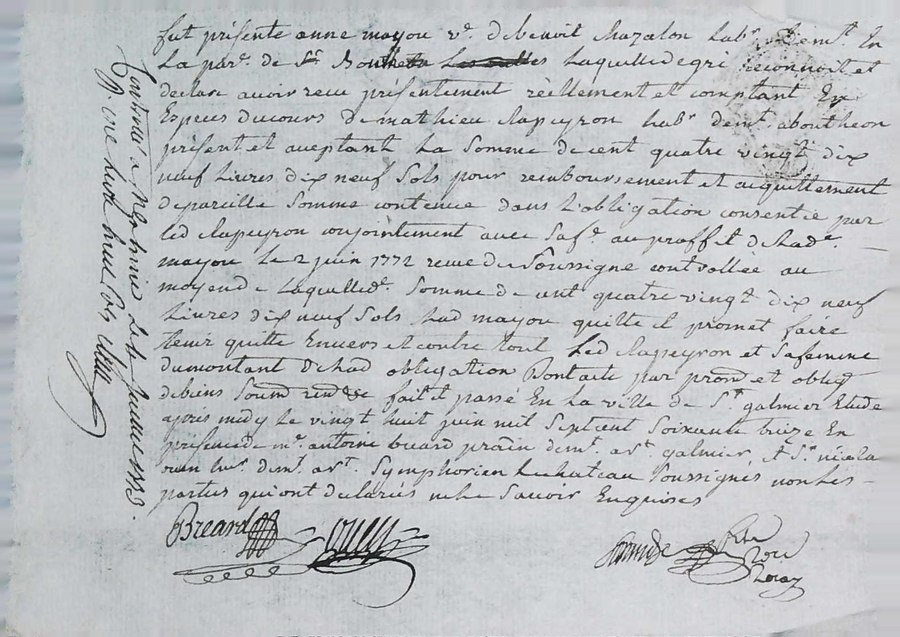 fut présente anne mayou v.e de benoit mazalon lab.r dem.t En
La par.e de S.t Bonnet Les oulles Laquelle de gré reconnoit et
declare avoir reçu présentement réellement et comptant En
Especes du cours de mathieu clapeyron lab.r dem.t a boutheon
présent et aceptant La Somme de cent quatre vingt dix
neuf Livres dix neuf Sols pour remboursement et acquittement
de pareille Somme contenue dans L'obligation consentie par
led clapeyron conjointement avec Sa f.e au proffit de lad.e
mayou Le 2 juin 1772 reçue du Soussigné controllée au
moyen de Laquelle d.e Somme de cent quatre vingt dix neuf
Livres dix neuf Sols Lad mayou quitte et promet faire
tenir quitte Envers et contre tout Led clapeyron et Sa femme
du montant de lad obligation Dont acte par prom et oblig
de biens Soum ren &c fait et passé En La ville de S.t galmier Etude
après midy le vingt huit juin mil Sept cent Soixante treize En
présence de m.e antoine bréard pratic dem.t a S.t galmier et S.r nicola
dem.t a S.t Symphorien Le chateau Soussignés non Les
parties qui ont déclaré ne le Savoir Enquises
Breard
Controllé a S.t galmier Le juillet 1773
Reçu une livre huit Sols